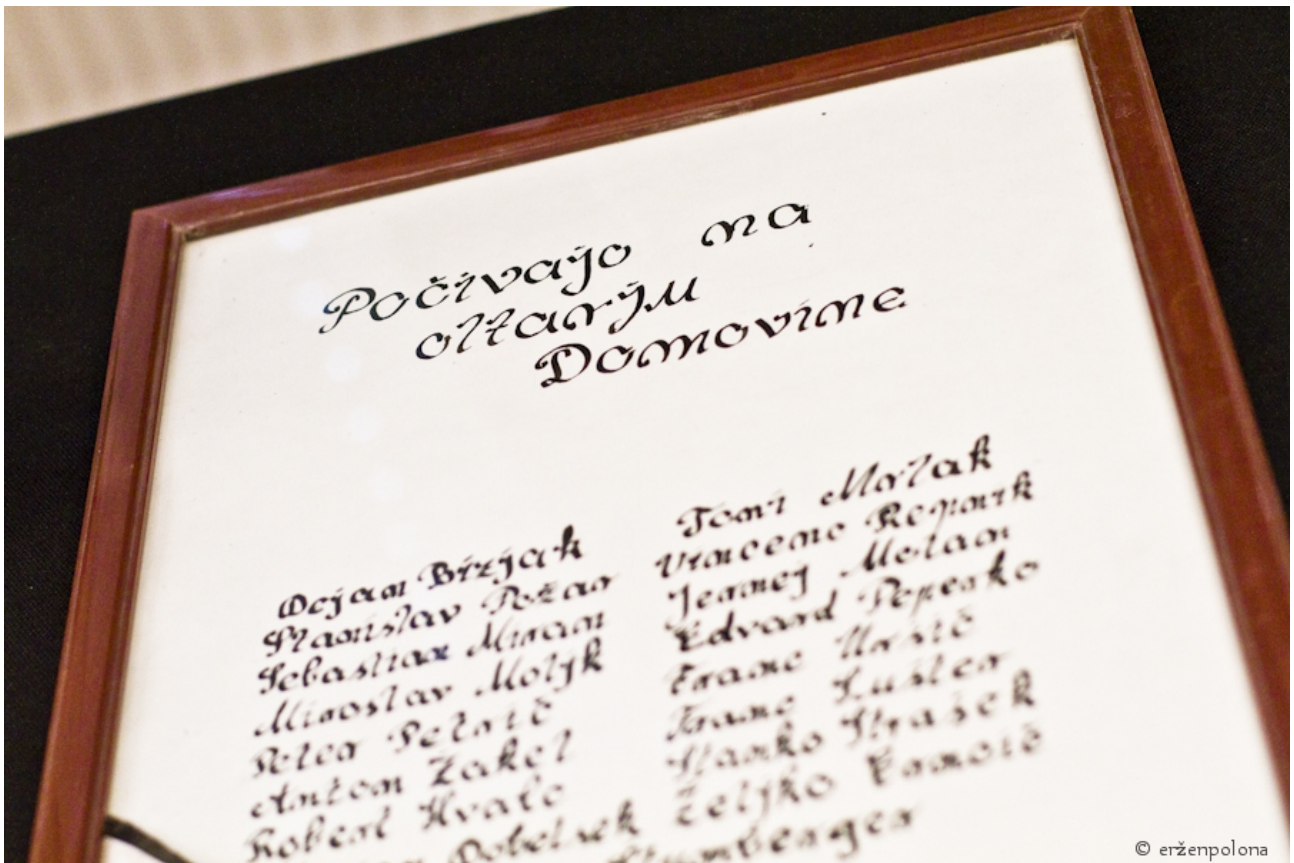 Počivajo na
oltarju
Domovine
Dejan Brzjak
Stanislav Požar
Sebastian Miran
Miroslav Moljk
Peter Petrič
Anton Žakel
Robert Hvalc
Dobelšek
Toni Mrlak
Vincenc Repnik
Jernej Molan
Edvard Peperko
Franc Uršič
Franc Šuster
Stanko Strašek
Željko Ernoič
© erženpolona